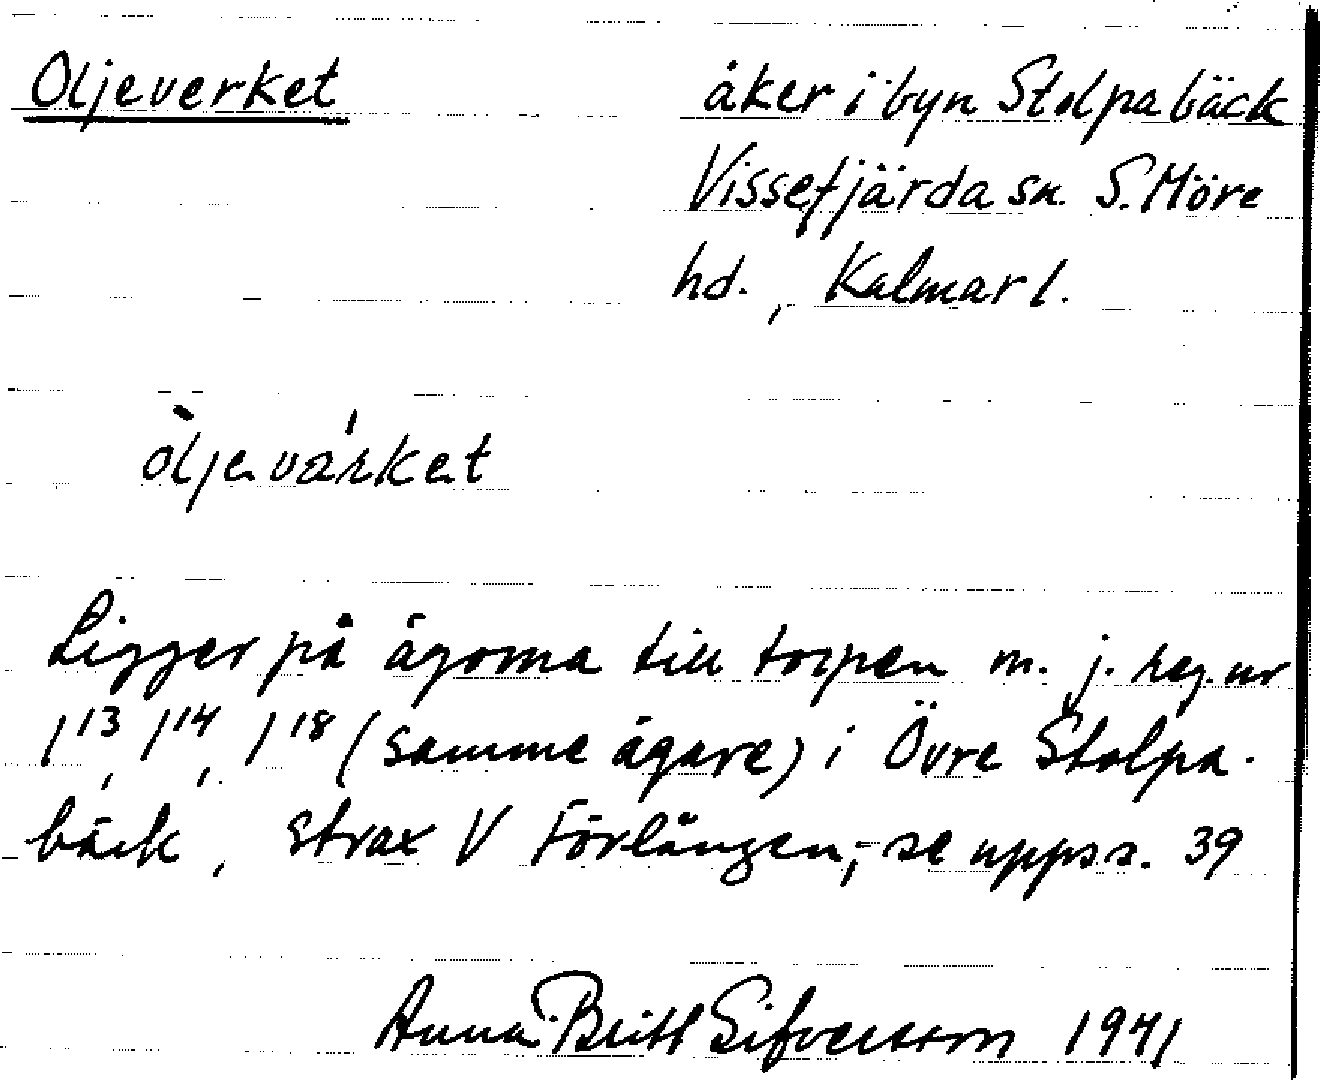 Oljeverket åker i byn Stolpabäck
Vissefjärda sn. S. Möre
hd., Kalmar l.
òljevárket
Ligger på ägorna till torpen m. j. reg. nr
1¹³, 1¹⁴, 1¹⁸ (samme ägare) i Övre Stolpa-
bäck, strax V Förlången, - se upps s. 39
Anna-Britt Sifversson 1941